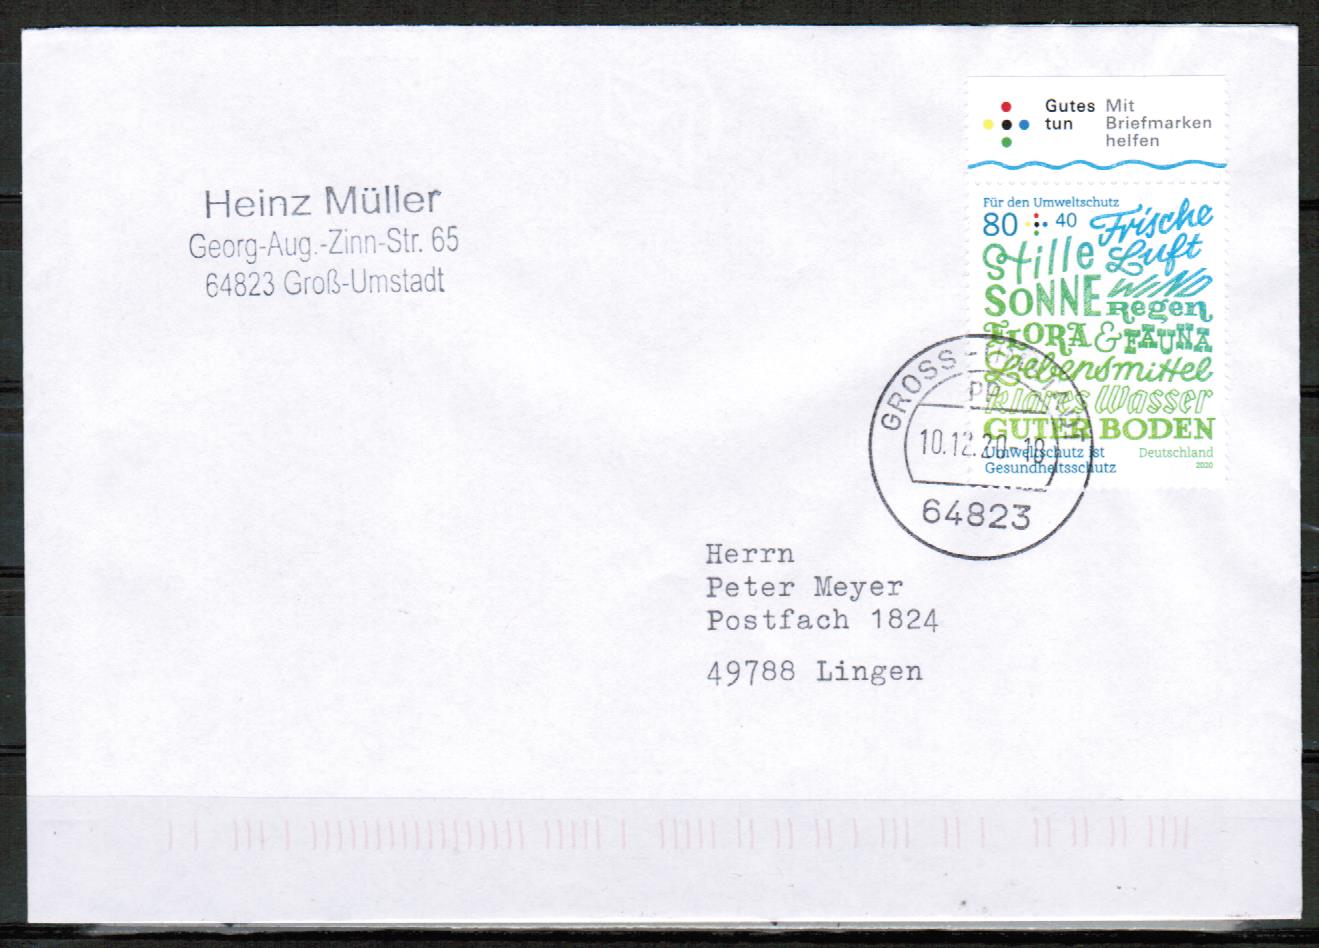 Gutes Mit
tun Briefmarken
helfen
Für den Umweltschutz
80 40 Frische
Stille Luft
SONNE WIND
Regen
FLORA & FAUNA
Lebensmittel
klares Wasser
GUTER BODEN
Umweltschutz ist Deutschland
Gesundheitsschutz 2020
Heinz Müller
Georg-Aug.-Zinn-Str. 65
64823 Groß-Umstadt
GROSS-
10.12.20-18
64823
Herrn
Peter Meyer
Postfach 1824
49788 Lingen